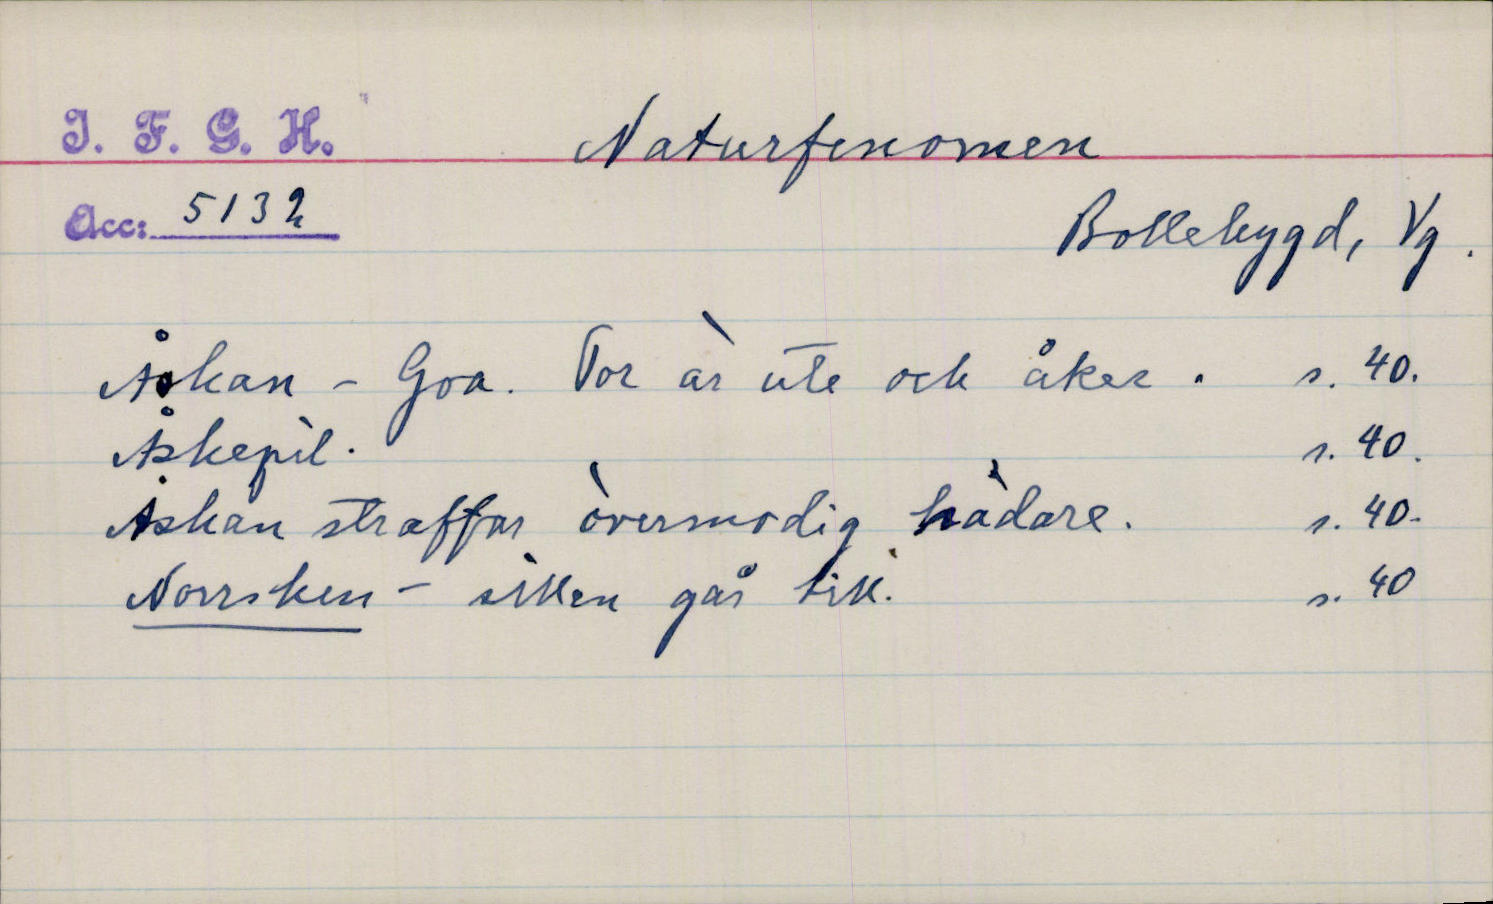 I. F. G. H. Naturfenomen
Acc: 5132
Bollebygd, Vg.
Åskan – Goa. Tor är ute och åker. s. 40.
Åskepil. s. 40.
Åskan straffar övermodig hädare. s. 40.
Norrsken – sillen går till. s. 40